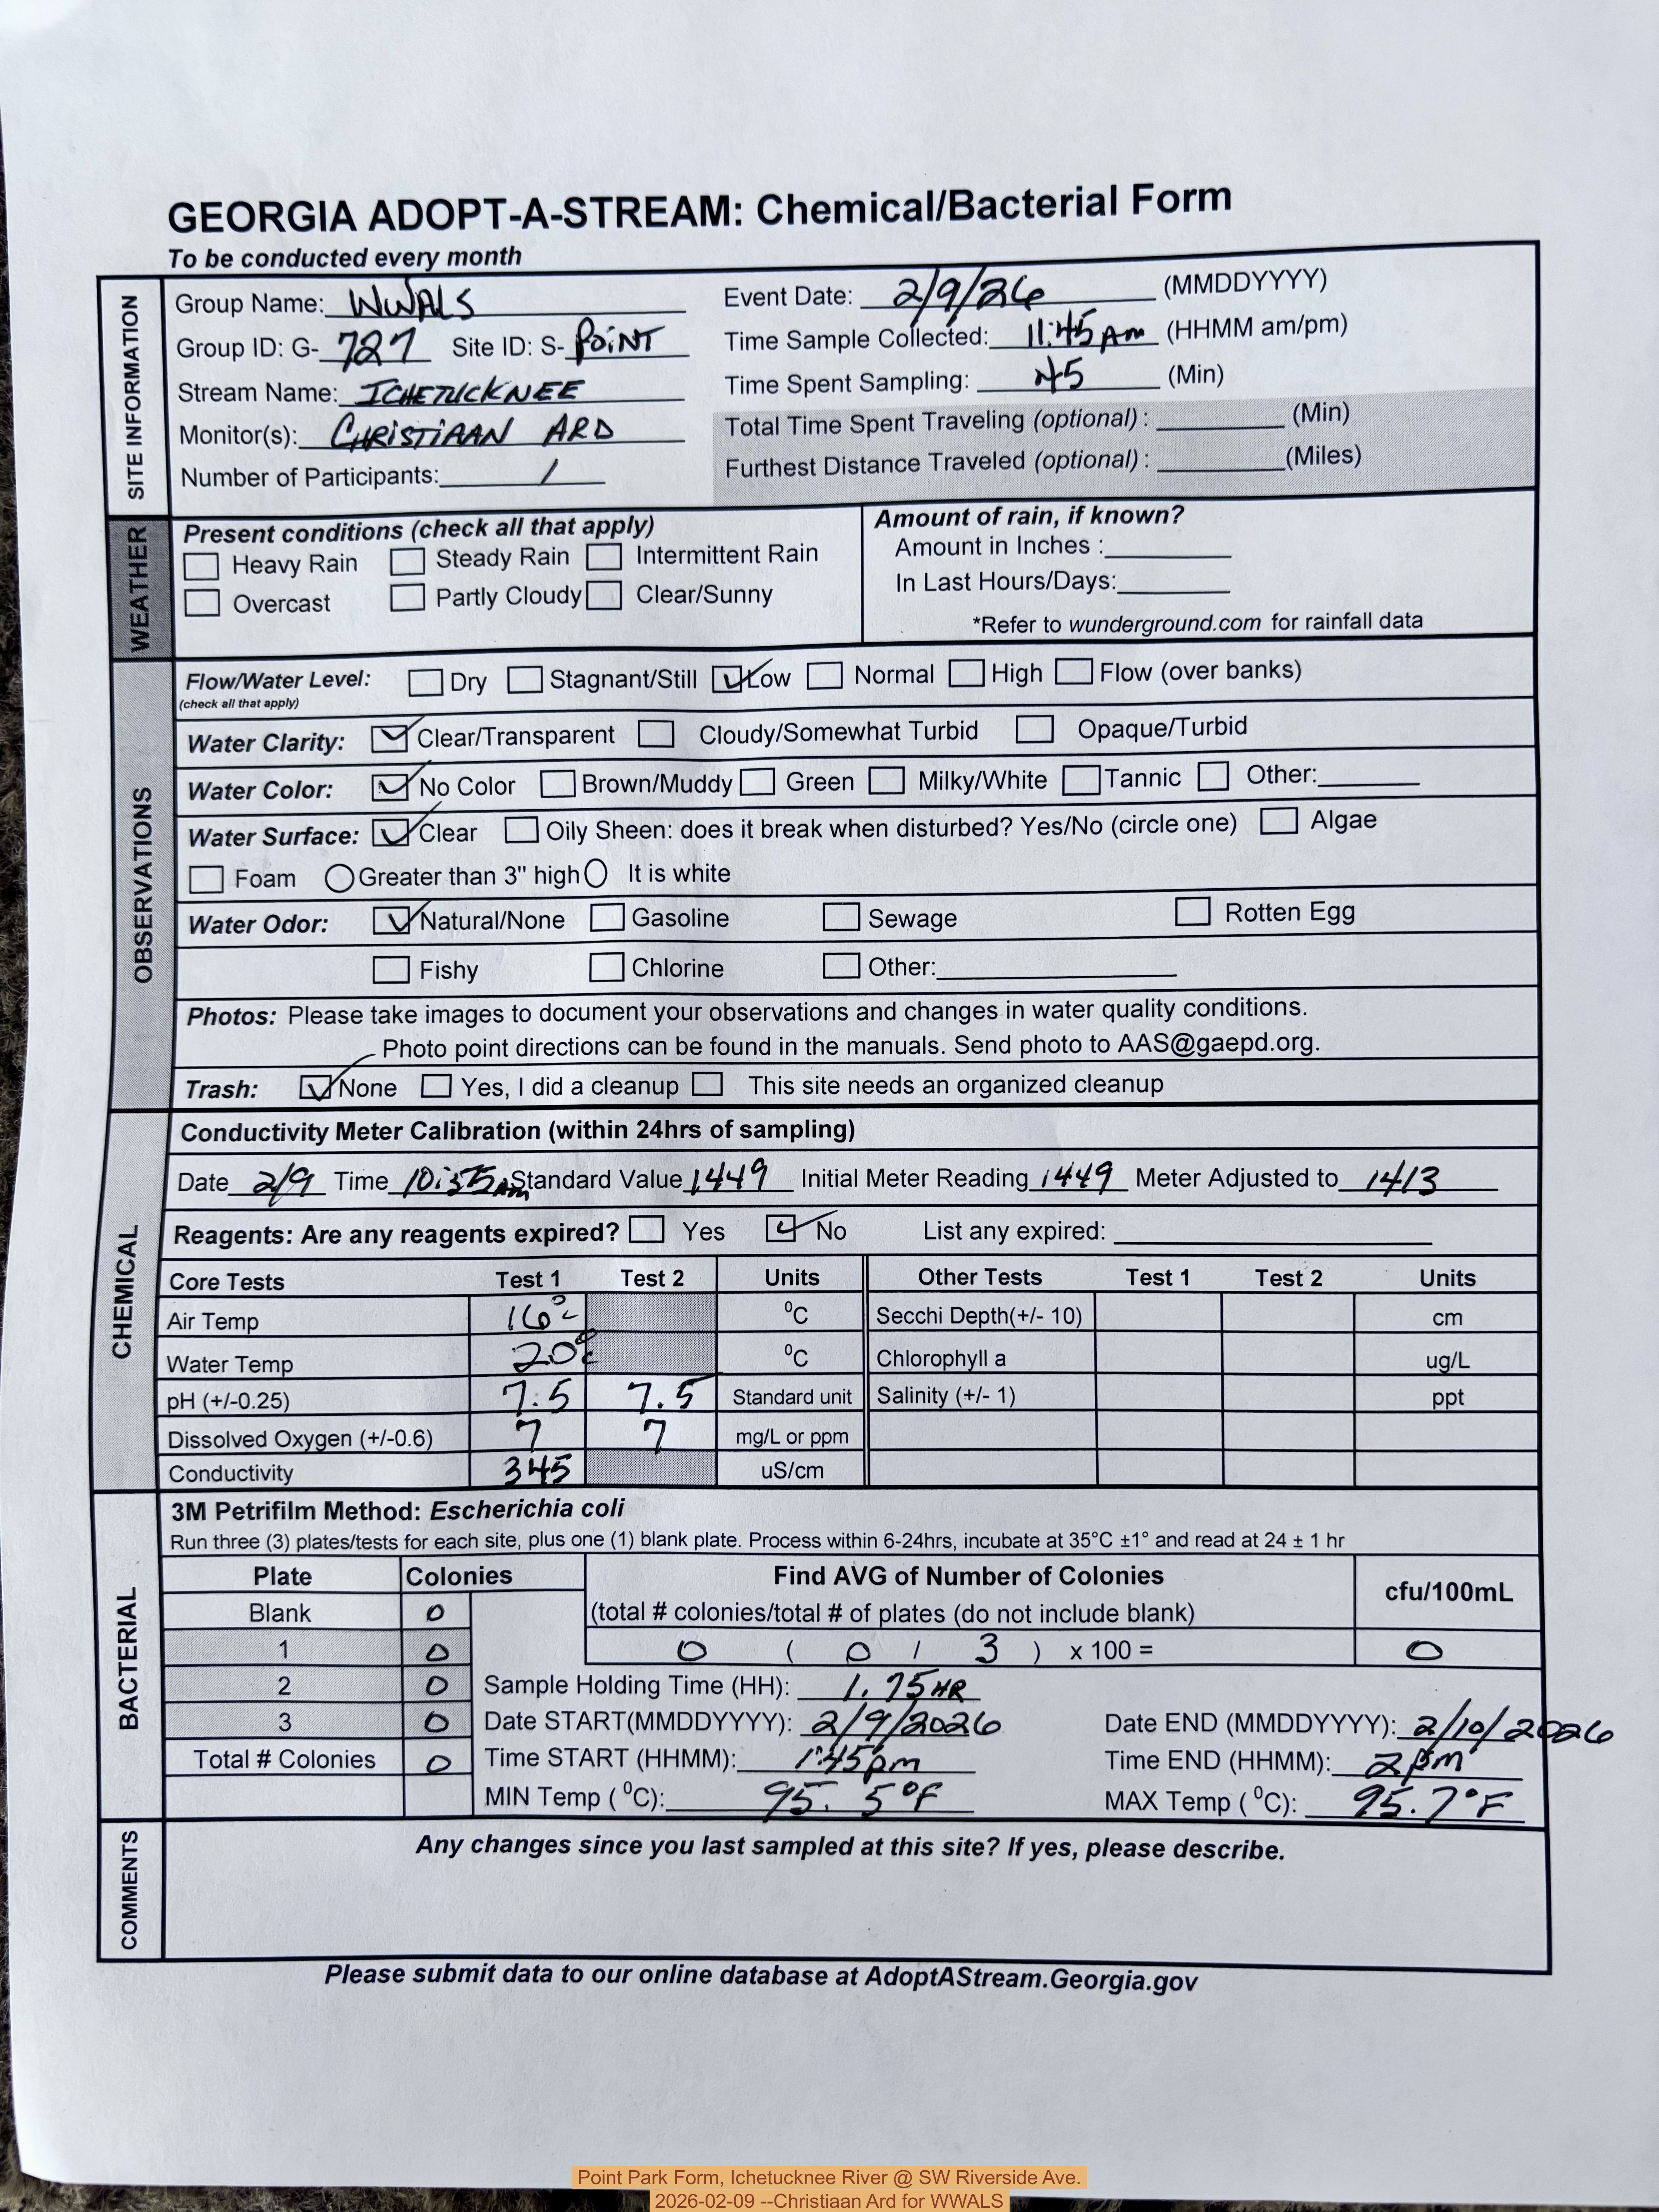 GEORGIA ADOPT-A-STREAM: Chemical/Bacterial Form
To be conducted every month
SITE INFORMATION
Group Name: WWALS
Event Date: 2/9/26 (MMDDYYYY)
Group ID: G- 727 Site ID: S- POINT
Time Sample Collected: 11:45 Am (HHMM am/pm)
Stream Name: ICHETUCKNEE
Time Spent Sampling: 45 (Min)
Monitor(s): CHRISTIAAN ARD
Total Time Spent Traveling (optional) : (Min)
Number of Participants: 1
Furthest Distance Traveled (optional) : (Miles)
WEATHER
Present conditions (check all that apply)
Heavy Rain Steady Rain Intermittent Rain
Overcast Partly Cloudy Clear/Sunny
Amount of rain, if known?
Amount in Inches :
In Last Hours/Days:
*Refer to wunderground.com for rainfall data
OBSERVATIONS
Flow/Water Level: Dry Stagnant/Still ✓ Low Normal High Flow (over banks)
(check all that apply)
Water Clarity: ✓ Clear/Transparent Cloudy/Somewhat Turbid Opaque/Turbid
Water Color: ✓ No Color Brown/Muddy Green Milky/White Tannic Other:
Water Surface: ✓ Clear Oily Sheen: does it break when disturbed? Yes/No (circle one) Algae
Foam Greater than 3" high It is white
Water Odor: ✓ Natural/None Gasoline Sewage Rotten Egg
Fishy Chlorine Other:
Photos: Please take images to document your observations and changes in water quality conditions.
Photo point directions can be found in the manuals. Send photo to AAS@gaepd.org.
Trash: ✓ None Yes, I did a cleanup This site needs an organized cleanup
CHEMICAL
Conductivity Meter Calibration (within 24hrs of sampling)
Date 2/9 Time 10:35 Am Standard Value 1449 Initial Meter Reading 1449 Meter Adjusted to 1413
Reagents: Are any reagents expired? Yes ✓ No List any expired:
Core Tests Test 1 Test 2 Units Other Tests Test 1 Test 2 Units
Air Temp 16°C ⁰C Secchi Depth(+/- 10) cm
Water Temp 20°C ⁰C Chlorophyll a ug/L
pH (+/-0.25) 7.5 7.5 Standard unit Salinity (+/- 1) ppt
Dissolved Oxygen (+/-0.6) 7 7 mg/L or ppm
Conductivity 345 uS/cm
BACTERIAL
3M Petrifilm Method: Escherichia coli
Run three (3) plates/tests for each site, plus one (1) blank plate. Process within 6-24hrs, incubate at 35°C ±1° and read at 24 ± 1 hr
Plate Colonies Find AVG of Number of Colonies cfu/100mL
Blank 0 (total # colonies/total # of plates (do not include blank)
1 0 0 ( 0 / 3 ) x 100 = 0
2 0 Sample Holding Time (HH): 1.75 HR
3 0 Date START(MMDDYYYY): 2/9/2026 Date END (MMDDYYYY): 2/10/2026
Total # Colonies 0 Time START (HHMM): 1:45pm Time END (HHMM): 2pm
MIN Temp ( ⁰C): 95.5°F MAX Temp ( ⁰C): 95.7°F
COMMENTS
Any changes since you last sampled at this site? If yes, please describe.
Please submit data to our online database at AdoptAStream.Georgia.gov
Point Park Form, Ichetucknee River @ SW Riverside Ave.
2026-02-09 --Christiaan Ard for WWALS